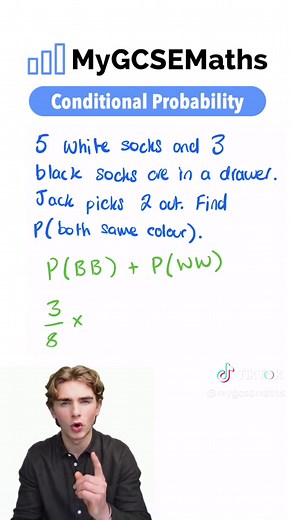 MyGCSEMaths
Conditional Probability
5 white socks and 3
black socks are in a drawer.
Jack picks 2 out. Find
P(both same colour).
P(BB) + P(WW)
3/8 ×
TikTok
@mygcsemaths